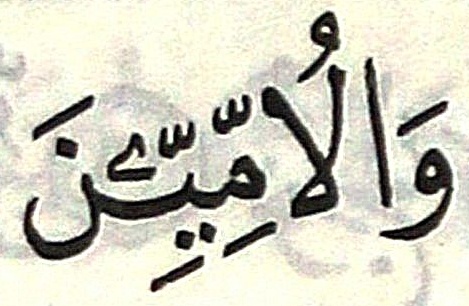 وَالْاُمِّيّٖنَ